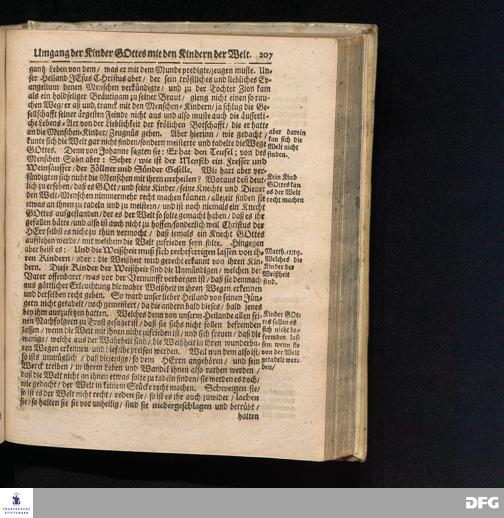 Umgang der Kinder GOttes mit den Kindern der Welt. 207
gantz Leben von dem / was er mit dem Munde predigte / zeugen muste. Un-
ser Heiland JEsus Christus aber / der sein tröstliches und liebliches Ev-
angelium denen Menschen verkündigte / und zu der Tochter Zion kam
als ein holdseliger Bräutigam zu seiner Braut / gieng nicht einen so rau-
chen Weg / er aß und tranck mit den Menschen-Kindern / ja schlug die Ge-
sellschafft seiner ärgesten Feinde nicht aus und also muste auch die äusserli-
che Lebens-Art von der Lieblichkeit der frölichen Botschafft / die er hatte
an die Menschen-Kinder / Zeugnüs geben. Aber hierinn / wie gedacht /
kunte sich die Welt gar nicht finden / sondern meisterte und tadelte die Wege
GOttes. Denn von Johanne sagten sie: Er hat den Teufel; von des
Menschen Sohn aber: Sehet / wie ist der Mensch ein Fresser und
Weinsauffer / der Zöllner und Sünder Geselle. Wie hart aber ver-
sündigten sich nicht die Menschen mit ihrem urtheilen? Woraus den deut-
lich zu ersehen / daß es GOtt / und seine Kinder / seine Knechte und Diener
den Welt-Menschen nimmermehr recht machen können / allezeit finden sie
etwas an ihnen zu tadeln und zu meistern / und ist noch niemals ein Knecht
GOttes aufgestanden / der es der Welt so solte gemacht haben / daß es ihr
gefallen hätte / und also ist auch nicht zu hoffen / sonderlich weil Christus der
HErr selbst es nicht zu thun vermocht / daß iemals ein Knecht GOttes
aufstehen werde / mit welchem die Welt zufrieden seyn solte. Hingegen
aber heist es: Und die Weißheit muß sich rechtfertigen lassen von ih-
ren Kindern / oder: die Weißheit wird gerecht erkannt von ihren Kin-
dern. Diese Kinder der Weißheit sind die Unmündigen / welchen der
Vater offenbaret / was vor der Vernunfft verborgen ist / daß sie demnach
aus göttlicher Erleuchtung die wahre Weißheit in ihren Wegen erkennen
und derselben recht geben. So ward unser lieber Heiland von seinen Jün-
gern nicht getadelt / noch gemeistert / da die andern bald dieses / bald jenes
bey ihm auszusetzen hatten. Welches denn von unserm Heilande allen sei-
nen Nachfolgern zu Trost gesaget ist / daß sie sichs nicht sollen befremden
lassen / wenn die Welt mit ihnen nicht zufrieden ist / und sich freuen / daß die
wenige / welche aus der Wahrheit sind / die Weißheit in ihren wunderba-
ren Wegen erkennen / und lieff ihr preisen werden. Weil nun dem also ist /
so ists unmüglich / daß diejenige / so dem HErrn angehören / und sein
Werck treiben / in ihrem Leben und Wandel ihnen also rathen werden /
daß die Welt nicht an ihnen etwas solte zu tadeln finden / sie werden es doch /
wie gedacht / der Welt in keinem Stücke recht machen. Schweigen sie /
so ist es der Welt nicht recht / reden sie / so ist es ihr auch zuwider / lachen
sie / so halten sie sie vor unheilig / sind sie niedergeschlagen und betrübt /
halten
aber darein
kan sich die
Welt nicht
finden.
Kein Kind
GOttes kan
es der Welt
recht machen
Matth. 11,19.
Welches die
Kinder der
Weißheit
sind.
Kinder GOt-
tes sollen es
sich nicht be-
fremden las-
sen wenn sie
von der Welt
getadelt wer-
den /
FRANCKESCHE
STIFTUNGEN
DFG